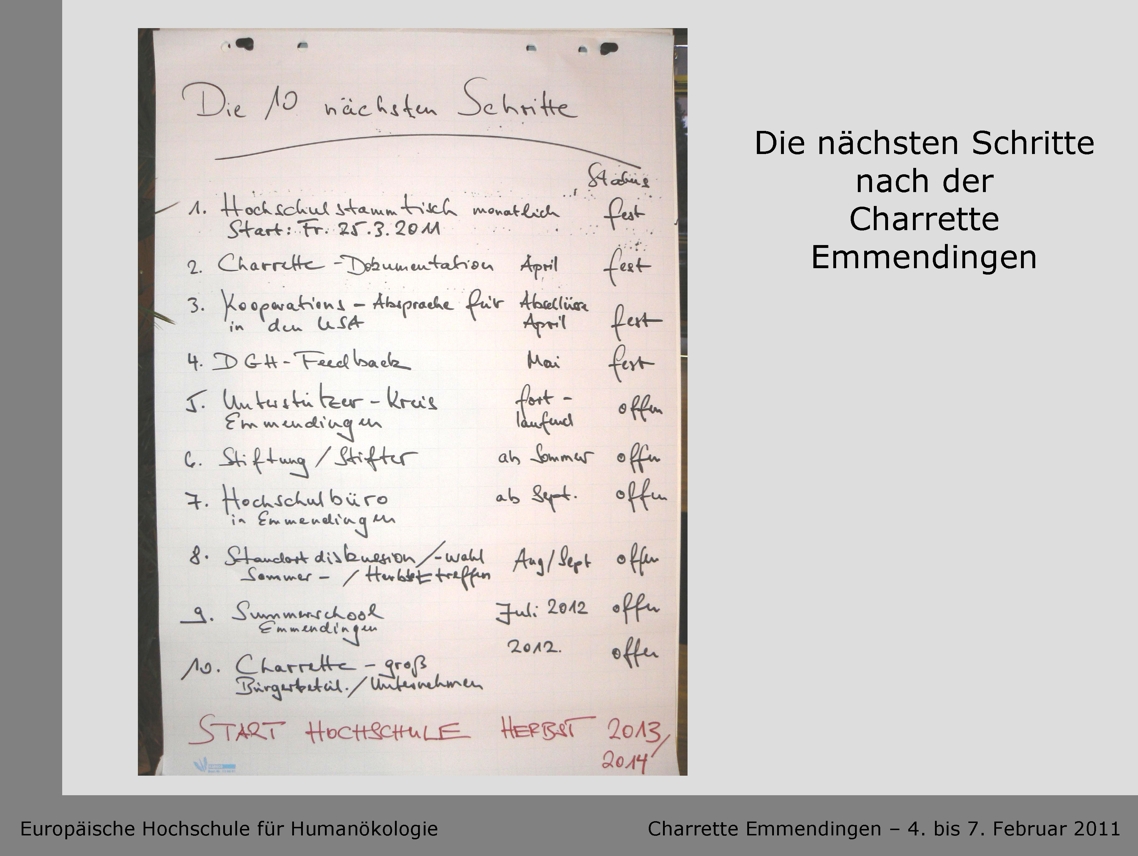 Die 10 nächsten Schritte
Status
1. Hochschulstammtisch monatlich fest
Start: Fr. 25.3.2011
2. Charrette - Dokumentation April fest
3. Kooperations - Absprache für Abschlüsse
in den USA April fest
4. DGH - Feedback Mai fest
5. Unterstützer - Kreis fort - offen
Emmendingen laufend
6. Stiftung / Stifter ab Sommer offen
7. Hochschulbüro ab Sept. offen
in Emmendingen
8. Standortdiskussion / -wahl Aug/Sept offen
Sommer - / Herbsttreffen
9. Summerschool Juli 2012 offen
Emmendingen
10. Charrette - groß 2012. offen
Bürgerbeteil. / Unternehmen
START HOCHSCHULE HERBST 2013/
2014
Die nächsten Schritte
nach der
Charrette
Emmendingen
Europäische Hochschule für Humanökologie
Charrette Emmendingen – 4. bis 7. Februar 2011